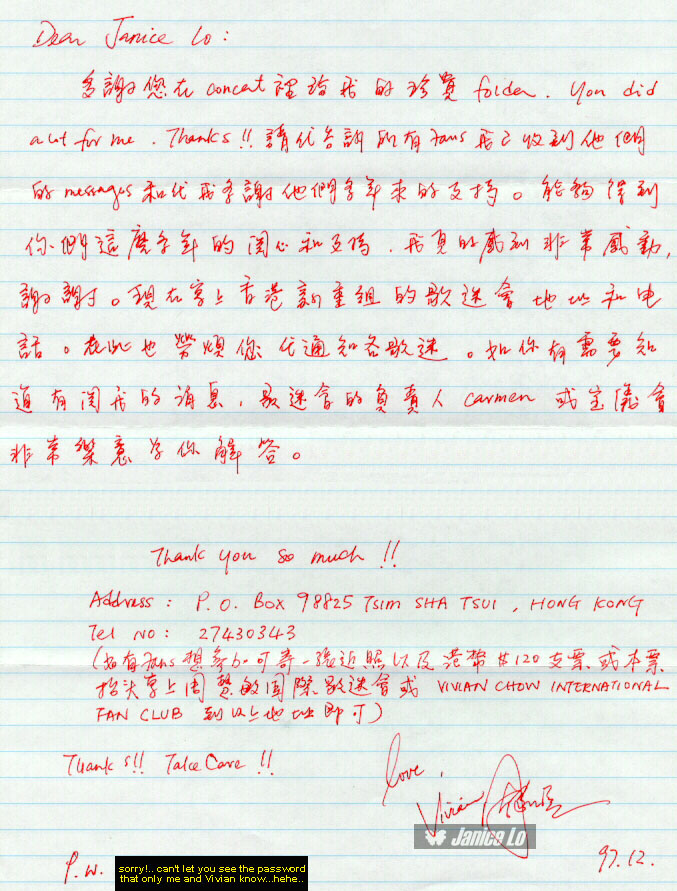 Dear Janice Lo :
多謝您在 concert 裡給我的珍寶 folder . You did
a lot for me . Thanks !! 請代告訴所有 fans 我已收到他們
的 messages 和代我多謝他們多年來的支持。能夠得到
你們這麼多年的関心和支持，我真的感到非常感動，
謝謝。現在寫上香港新重組的歌迷會地址和电
話。在此也勞煩您代通知各歌迷。如你有需要知
道有関我的消息，歌迷會的負責人 Carmen 或宝儀會
非常樂意为你解答。
Thank you so much !!
Address : P. O. Box 98825 TSIM SHA TSUI , HONG KONG
Tel NO : 27430343
(如有 fans 想參加可寄一張近照以及港幣 $120 支票或本票
抬头寫上周慧敏国際歌迷會或 VIVIAN CHOW INTERNATIONAL
FAN CLUB 到以上地址即可)
Thanks !! Take Care !!
love,
Vivian 周慧敏
Janice Lo
P.W. sorry!.. can't let you see the password
that only me and Vivian know...hehe..
97.12.